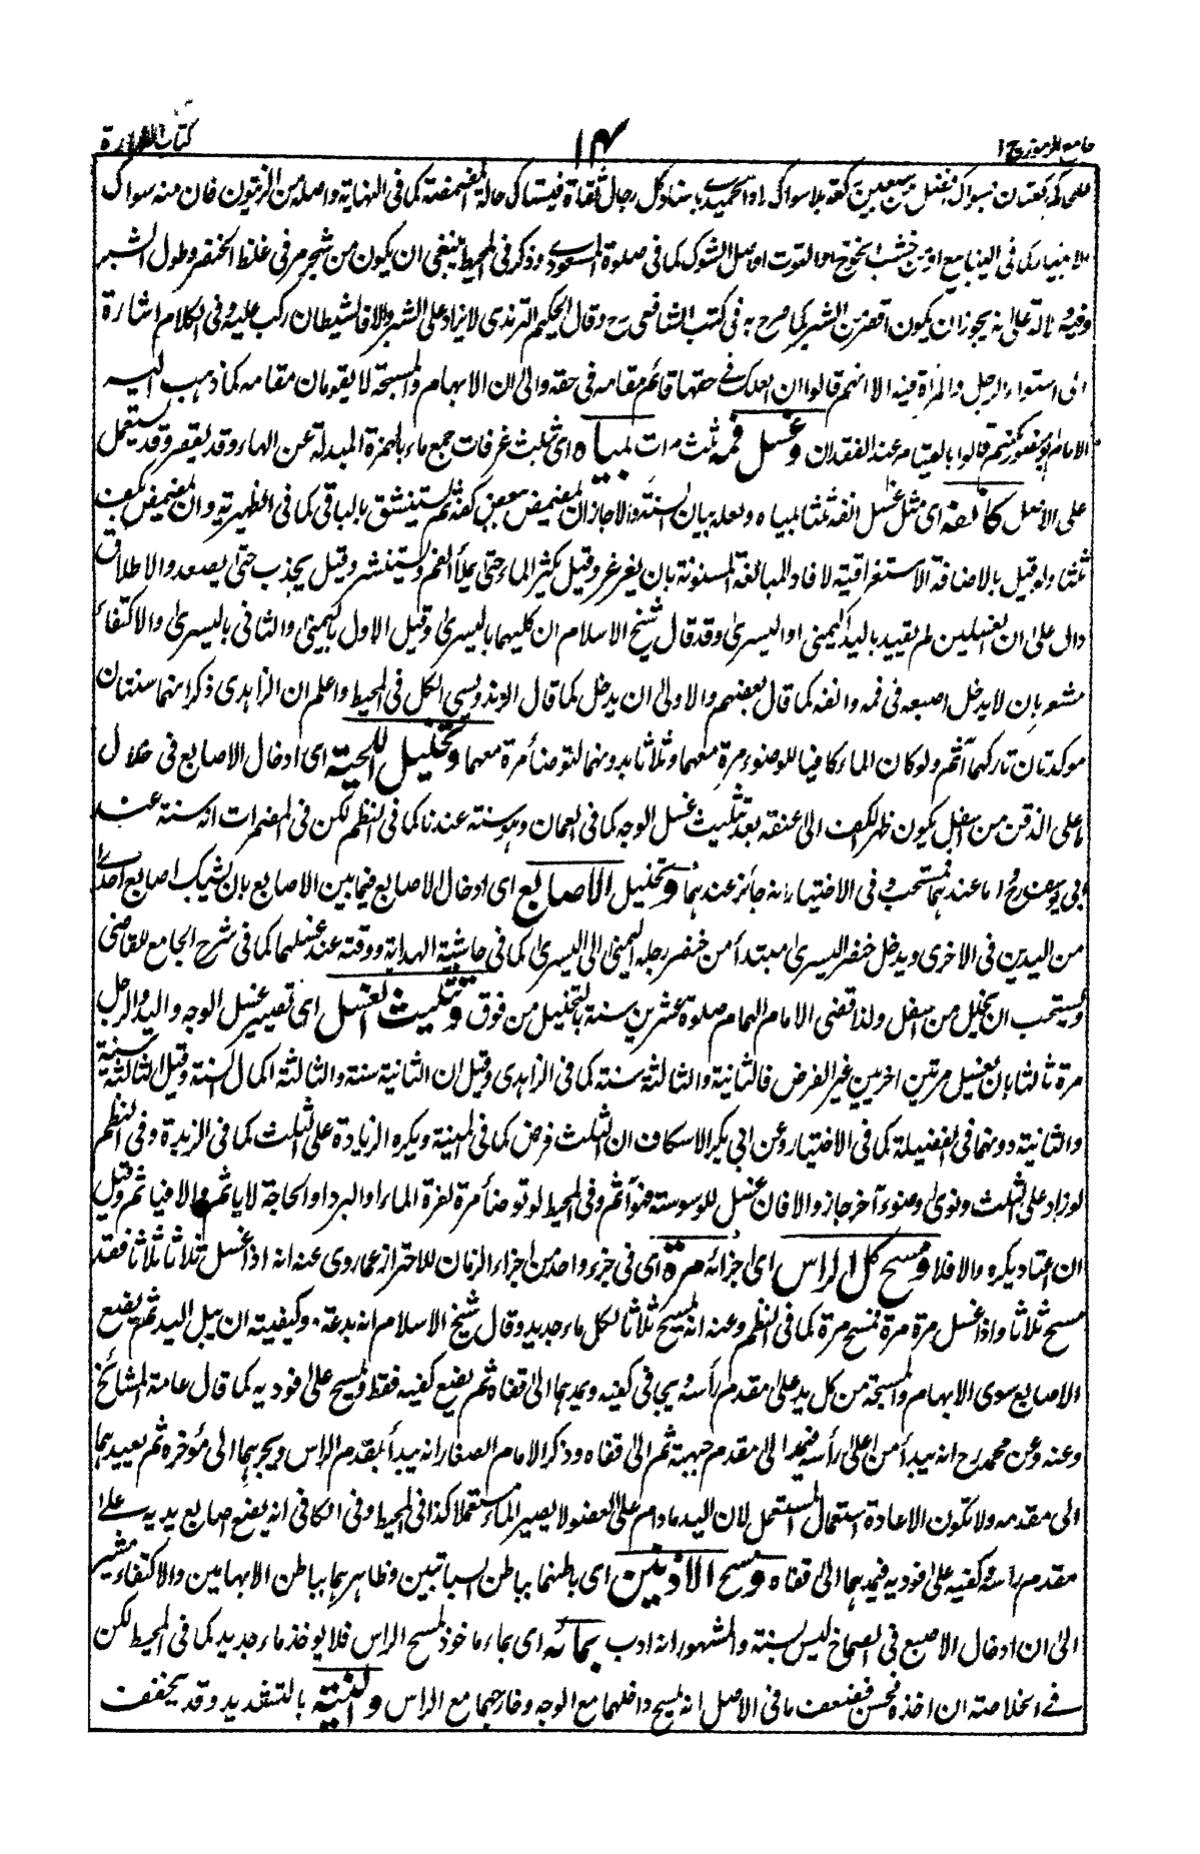 جامع الرموز ج ١
١٤
كتاب الطهارة
ركعتان بسواك افضل من سبعين ركعة بلا سواك رواه الحميدى باسناد كل رجال ثقاة فيستاك حالة المضمضة كما فى النهاية واصله من الزيتون فان منه سواك
الانبياء كما فى الينابيع او من خشب الخوخ او التوت او اصل الشوك كما فى صلوة المسعودى وذكر فى المحيط ينبغى ان يكون من شجر مر فى غلظ الخنصر وطول الشبر
وفيه دلالة على انه يجوز ان يكون اقصر من الشبر كما صرح به فى كتب الشافعى رح وقال الحكيم الترمذى لا يزاد على الشبر والا فالشيطان ركب عليه وفى الكلام اشارة
الى استواء الرجل والمرأة فيه الا انهم قالوا ان العلك فى حقها قائم مقامه فى حقه والى ان الابهام والمسبحة لا يقومان مقامه كما ذهب اليه
الامام ابو جعفر لكنهم قالوا بالقيام عند الفقدان وغسل فمه ثلث مرات بمياه اى ثلث غرفات جمع ماء بالهمزة المبدلة عن الهاء وقد يقصر وقد يستعمل
على الاصل كأنفه اى مثل غسل انفه ثلثا بمياه ولعله بيان السنة والا جاز ان يمضمض ببعض كفه ثم يستنشق بالباقى كما فى الظهيرية وان يمضمض بكف
ثلثا ولو قيل بالاضافة الاستغراقية لافاد المبالغة المسنونة بان يغرغر وقيل يكثر الماء حتى يملأ الفم ويستنشر وقيل يجذب حتى يصعد والاطلاق
دال على ان الغسلين لم يقيد باليد اليمنى او اليسرى وقد قال شيخ الاسلام ان كليهما باليسرى وقيل الاول باليمنى والثانى باليسرى والاكتفاء
مشعر بان لا يدخل اصبعه فى فمه وانفه كما قال بعضهم والاولى ان يدخل كما قال الزندويسى الكل فى المحيط واعلم ان الزاهدى ذكر انهما سنتان
موكدتان تاركهما آثم ولو كان الماء كافيا للوضوء مرة معهما وثلاثا بدونهما لتوضأ مرة معهما وتخليل اللحية اى ادخال الاصابع فى خلال
ما على الذقن من اسفل بكون ظهر الكف الى عنقه بعد تثليث غسل الوجه كما فى العمان وهو سنة عندنا كما فى النظم لكن فى المضمرات انه سنة عند
ابى يوسف رح اما عندهما فمستحب وفى الاختيار انه جائز عندهما وتخليل الاصابع اى ادخال الاصابع فيما بين الاصابع بان يشبك اصابع احدى
من اليدين فى الاخرى ويدخل خنصر اليسرى مبتدأ من خنصر رجله اليمنى الى اليسرى كما فى حاشية الهداية ووقته عند غسلهما كما فى شرح الجامع للقاضى
ويستحب ان يخلل من اسفل ولذا قضى الامام الهمام صلوة عشرين سنة بالتخليل من فوق وتثليث الغسل اى تصيير غسل الوجه واليد والرجل
مرة ثالثا بان يغسل مرتين اخريين غير الفرض فالثانية والثالثة سنة كما فى الزاهدى وقيل ان الثانية سنة والثالثة اكمال السنة وقيل الثالثة سنة
والثانية دونها فى الفضيلة كما فى الاختيار وعن ابى بكر الاسكاف ان الثلث فرض كما فى المنية ويكره الزيادة على الثلث كما فى الزبدة وفى النظم
لو زاد على الثلث ونوى وضوء آخر جاز والا فان غسل للوسوسة فهو آثم وفى المحيط لو توضأ مرة لعزة الماء او البرد او الحاجة لا ياثم والا فياثم وقيل
ان اعتاد يكره والا فلا ومسح كل الراس اى اجزائه مرة اى فى جزء واحد من اجزاء الزمان للاحتراز عما روى عنه انه اذا غسل ثلاثا ثلاثا فقد
مسح ثلاثا واذا غسل مرة مرة فمسح مرة كما فى النظم وعنه انه يمسح ثلاثا لكل ماء جديد وقال شيخ الاسلام انه بدعة وكيفيته ان يبل اليد ثم يضع
الاصابع سوى الابهام والمسبحة من كل يد على مقدم رأسه ويجافى كفيه ويمدهما الى قفاه ثم يضع كفيه فقط ويمسح على فوديه كما قال عامة المشائخ
وعنه وعن محمد رح انه يبدأ من اعلى رأسه الى مقدم جبهته ثم الى قفاه وذكر الامام الصفار انه يبدأ بمقدم الراس ويجرهما الى مؤخره ثم يعيدهما
الى مقدمه ولا تكون الاعادة استعمال المستعمل لان اليد ما دام على العضو لا يصير الماء مستعملا كذا فى المحيط وفى الكافى انه يضع اصابع يديه على
مقدم رأسه وكفيه على فوديه فيمدهما الى قفاه ومسح الاذنين اى باطنهما بباطن السبابتين وظاهرهما بباطن الابهامين والاكتفاء مشير
الى ان ادخال الاصبع فى الصماخ ليس بسنة والمشهور انه ادب بمائه اى بماء ماخوذ لمسح الراس فلا يوخذ ماء جديد كما فى المحيط لكن
فى الخلاصة ان اخذه فحسن فضعف ما فى الاصل انه يمسح داخلهما مع الوجه وخارجهما مع الراس والنية بالتشديد وقد يخفف